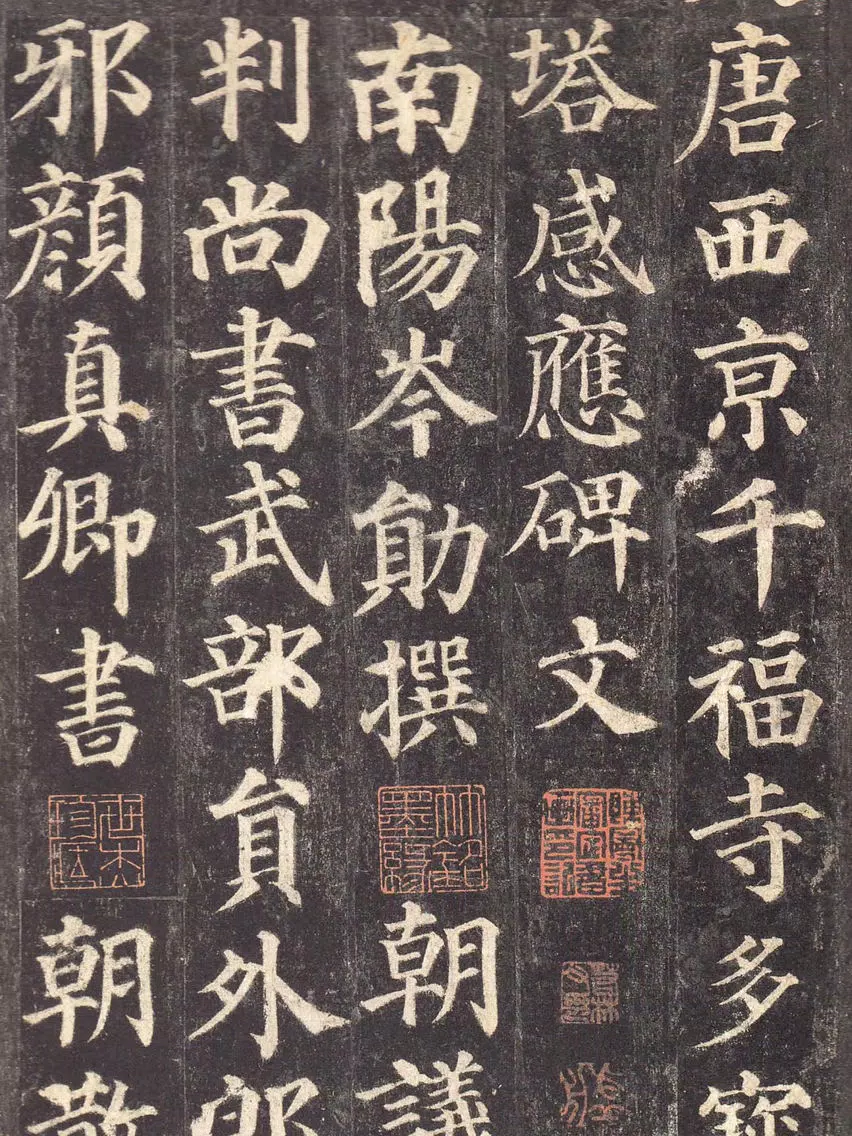 唐西京千福寺多寶
塔感應碑文
南陽岑勛撰 朝議
判尚書武部員外郎
邪顏真卿書 朝散